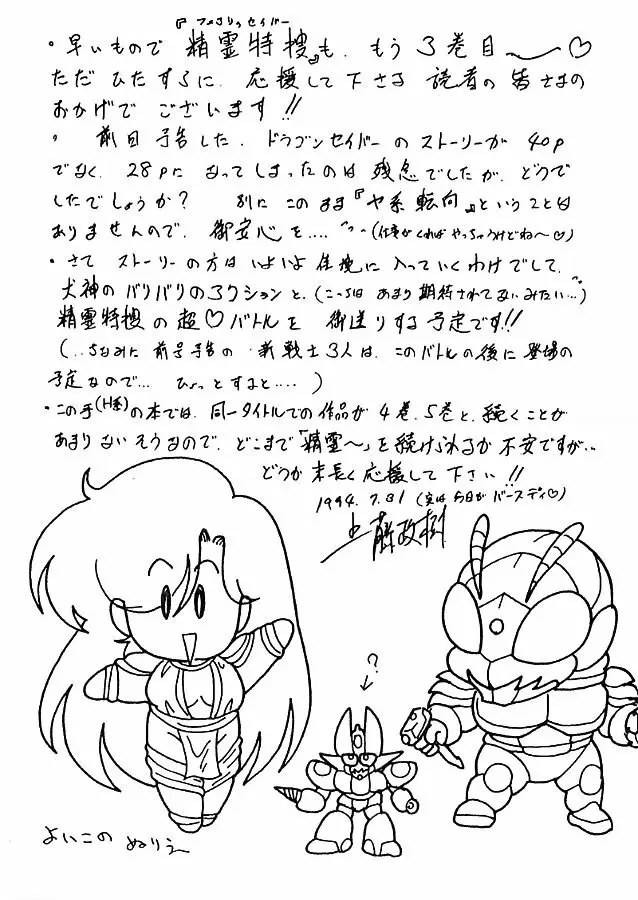 『フェアリィセイバー
・早いもので 精霊特捜』も、もう 3巻目〜〜♡
ただ ひたすらに、応援して下さる 読者の 皆さまの
おかげで ございます!!
・ 前回 予告した、ドラゴンセイバーの ストーリーが 40p
でなく、28pに なってしまったのは 残念でしたが、どうで
したでしょうか? 別に このまま『ヤ系 転向』ということは
ありませんので、御安心を…… (仕事がくれば やっちゃうけどね〜♡)
・さて ストーリーの方は いよいよ 佳境に 入っていくわけでして、
犬神の バリバリの アクションと、(こっちは あまり 期待されてないみたい…)
精霊特捜の 超♡バトルを 御送りする予定です!!
(‥ちなみに 前号予告の 新戦士3人は、このバトルの後に 登場の
予定なので… ひょっとすると…‥ )
・この手(H系)の本では、同一タイトルでの作品が 4巻、5巻と、続くことが
あまりないそうなので、どこまで「精霊〜」を続けられるか 不安ですが‥
どうか 末長く 応援して 下さい!!
1994.7.31 (実は 今日が バースディ♡)
上藤政樹
?
よいこの ぬりえ